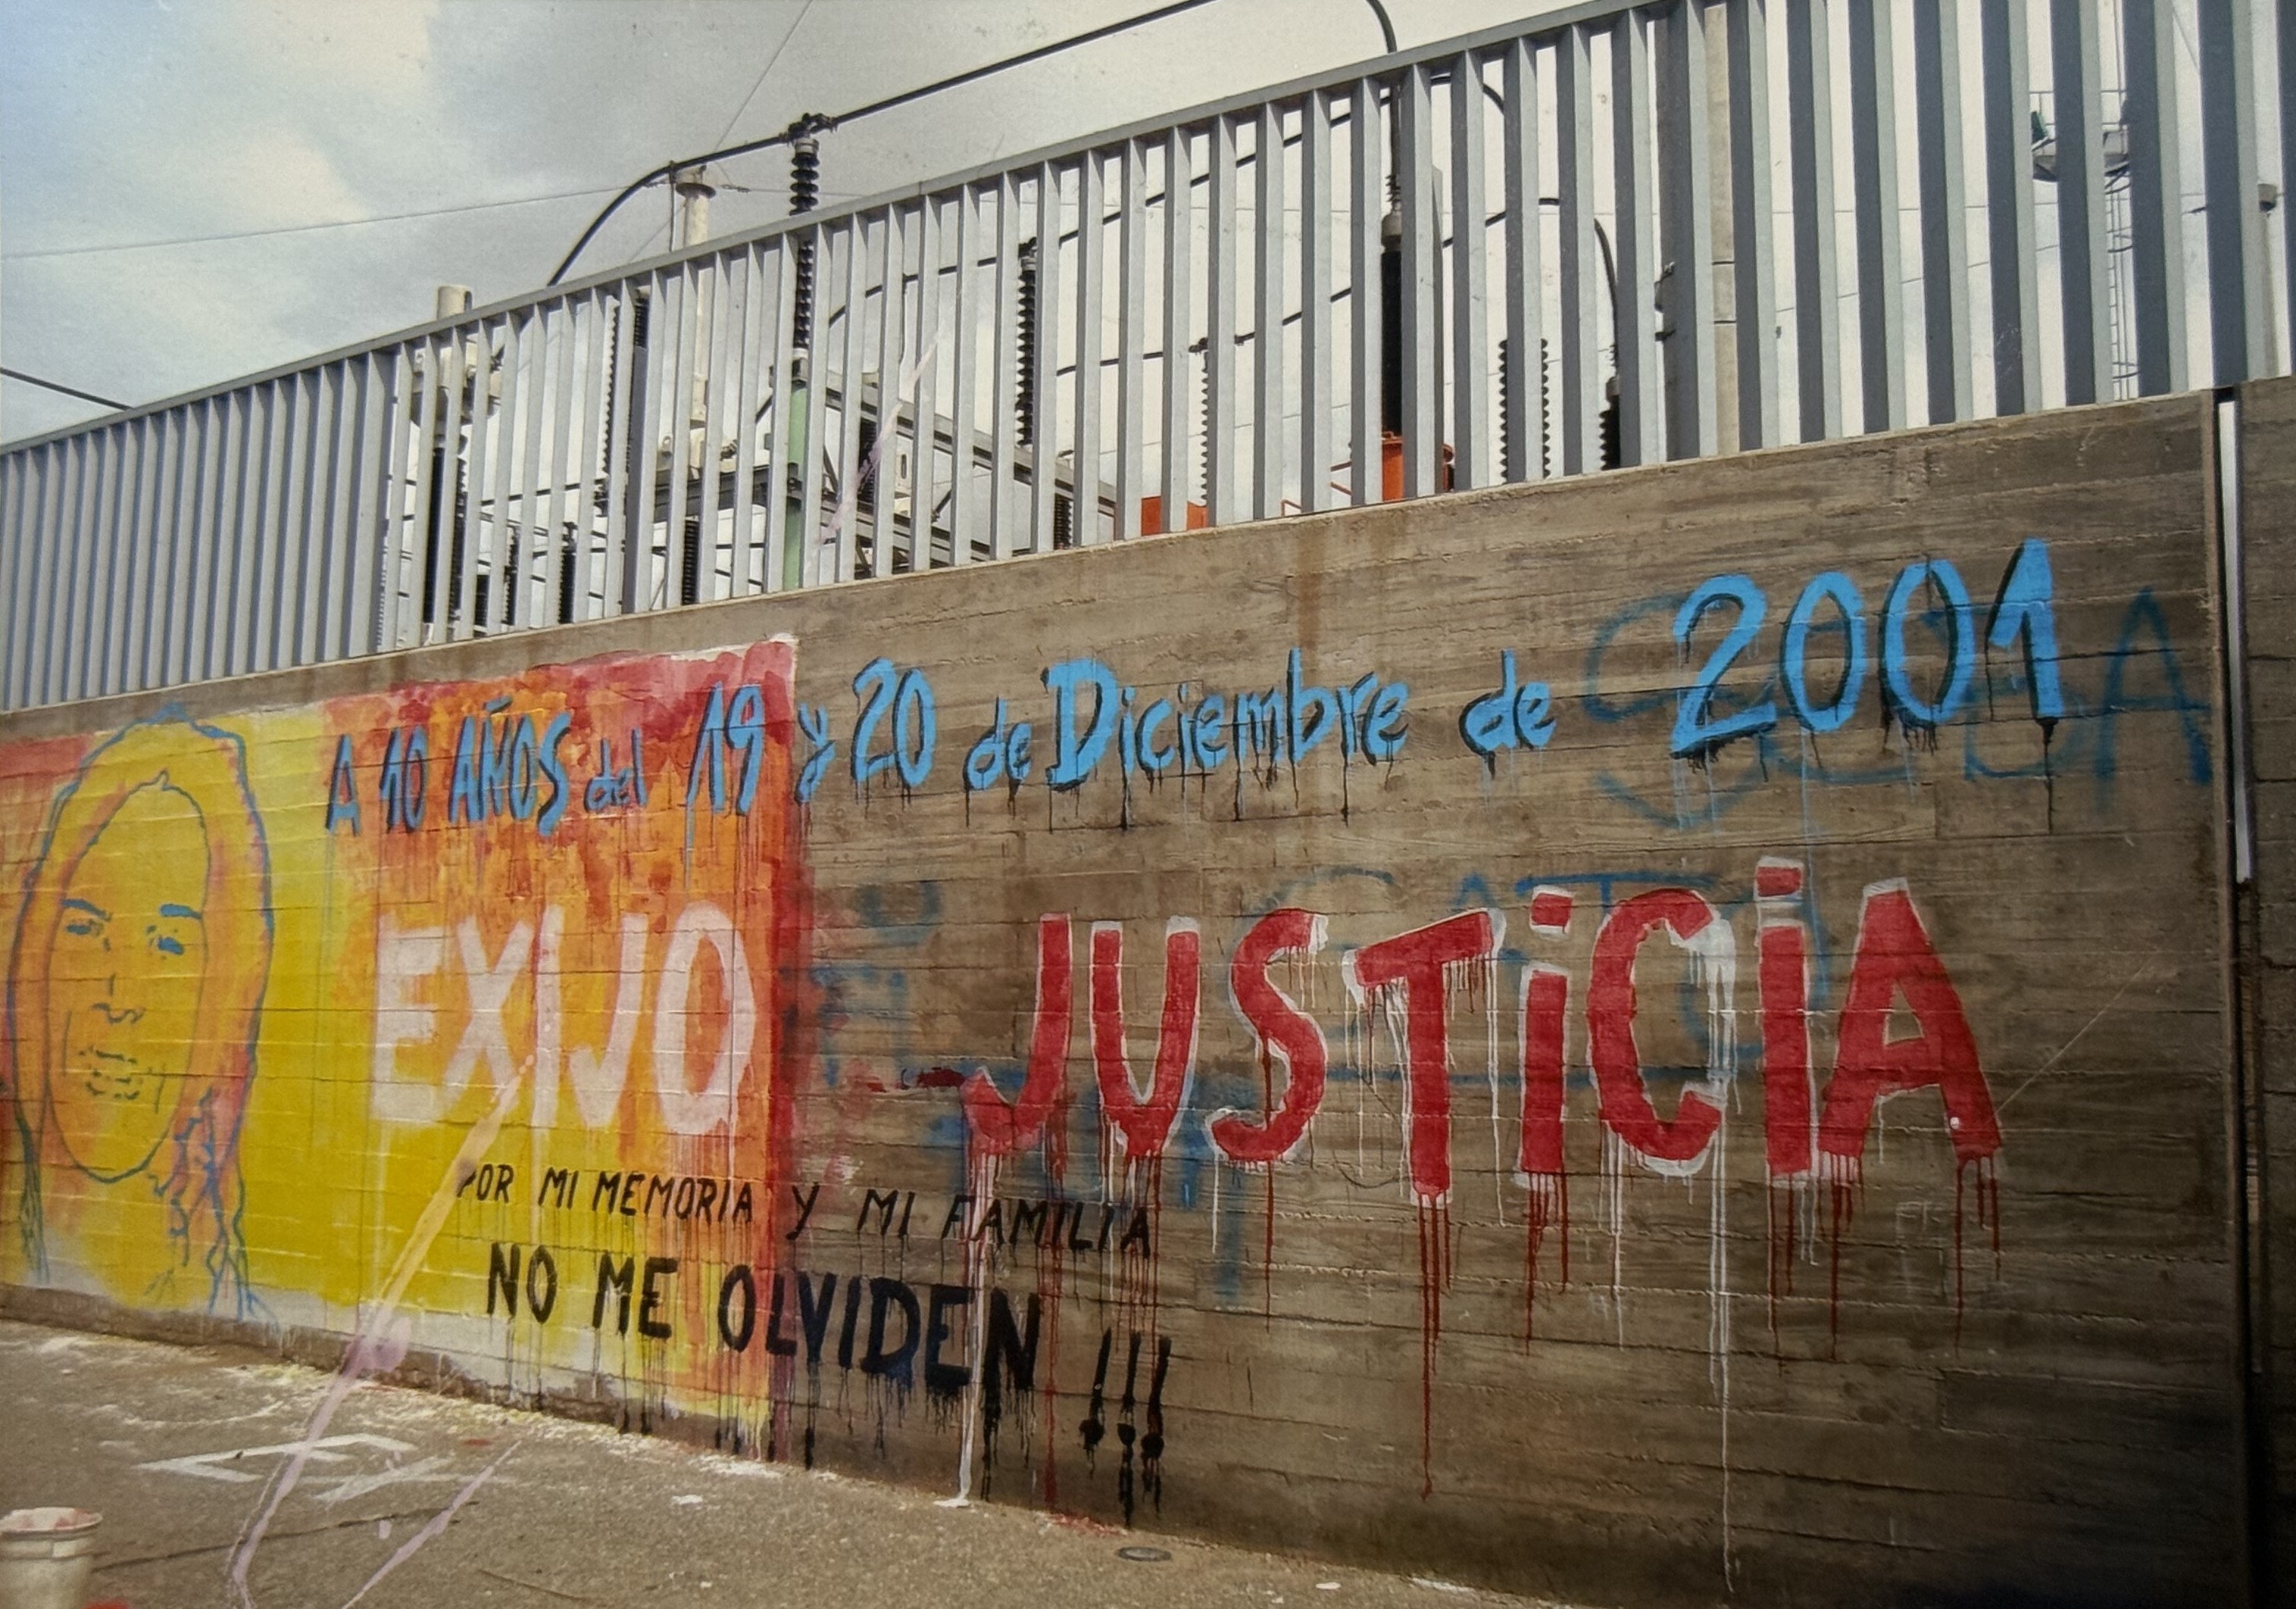 A 10 AÑOS del 19 y 20 de Diciembre de 2001
EXIJO JUSTICIA
POR MI MEMORIA Y MI FAMILIA
NO ME OLVIDEN !!!